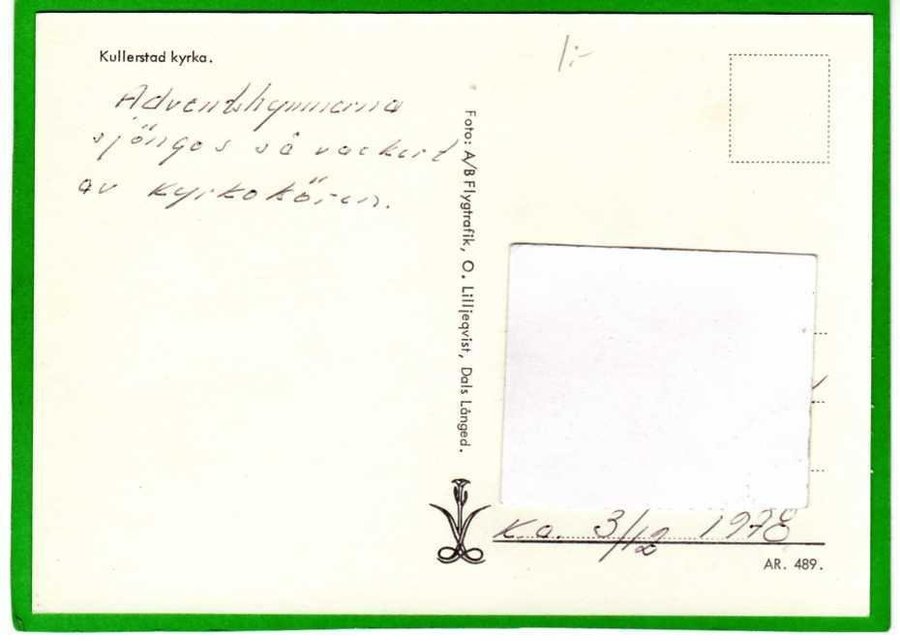 Kullerstad kyrka.
1:-
Adventshymnerna
sjöngos så vackert
av kyrkokören.
Foto: A/B Flygtrafik, O. Lilljeqvist, Dals Långed.
Ka. 3/12 1978
AR. 489.